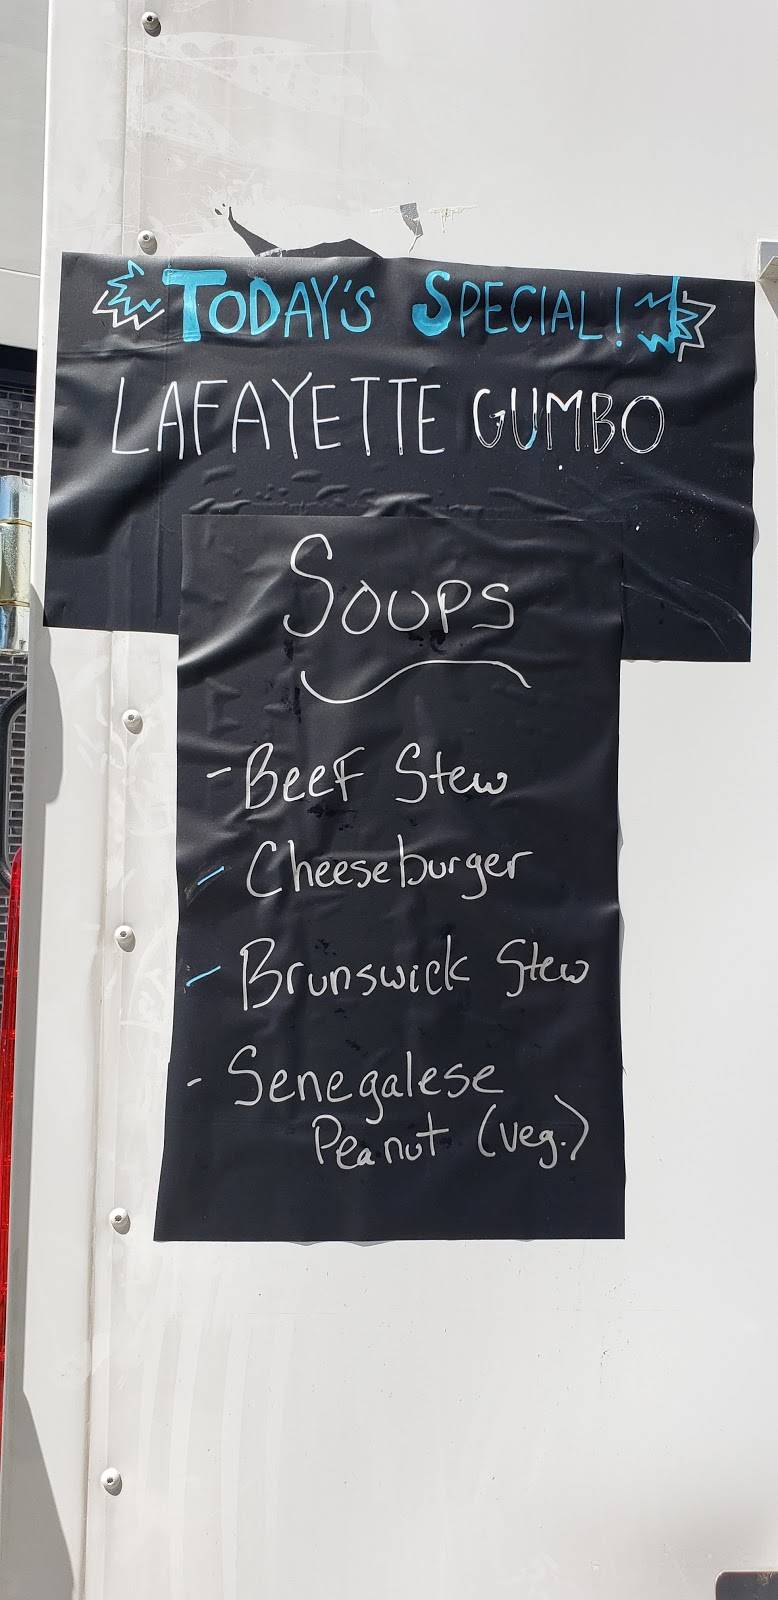 TODAY'S SPECIAL!
LAFAYETTE GUMBO
SOUPS
- Beef Stew
- Cheeseburger
- Brunswick Stew
- Senegalese
Peanut (veg.)